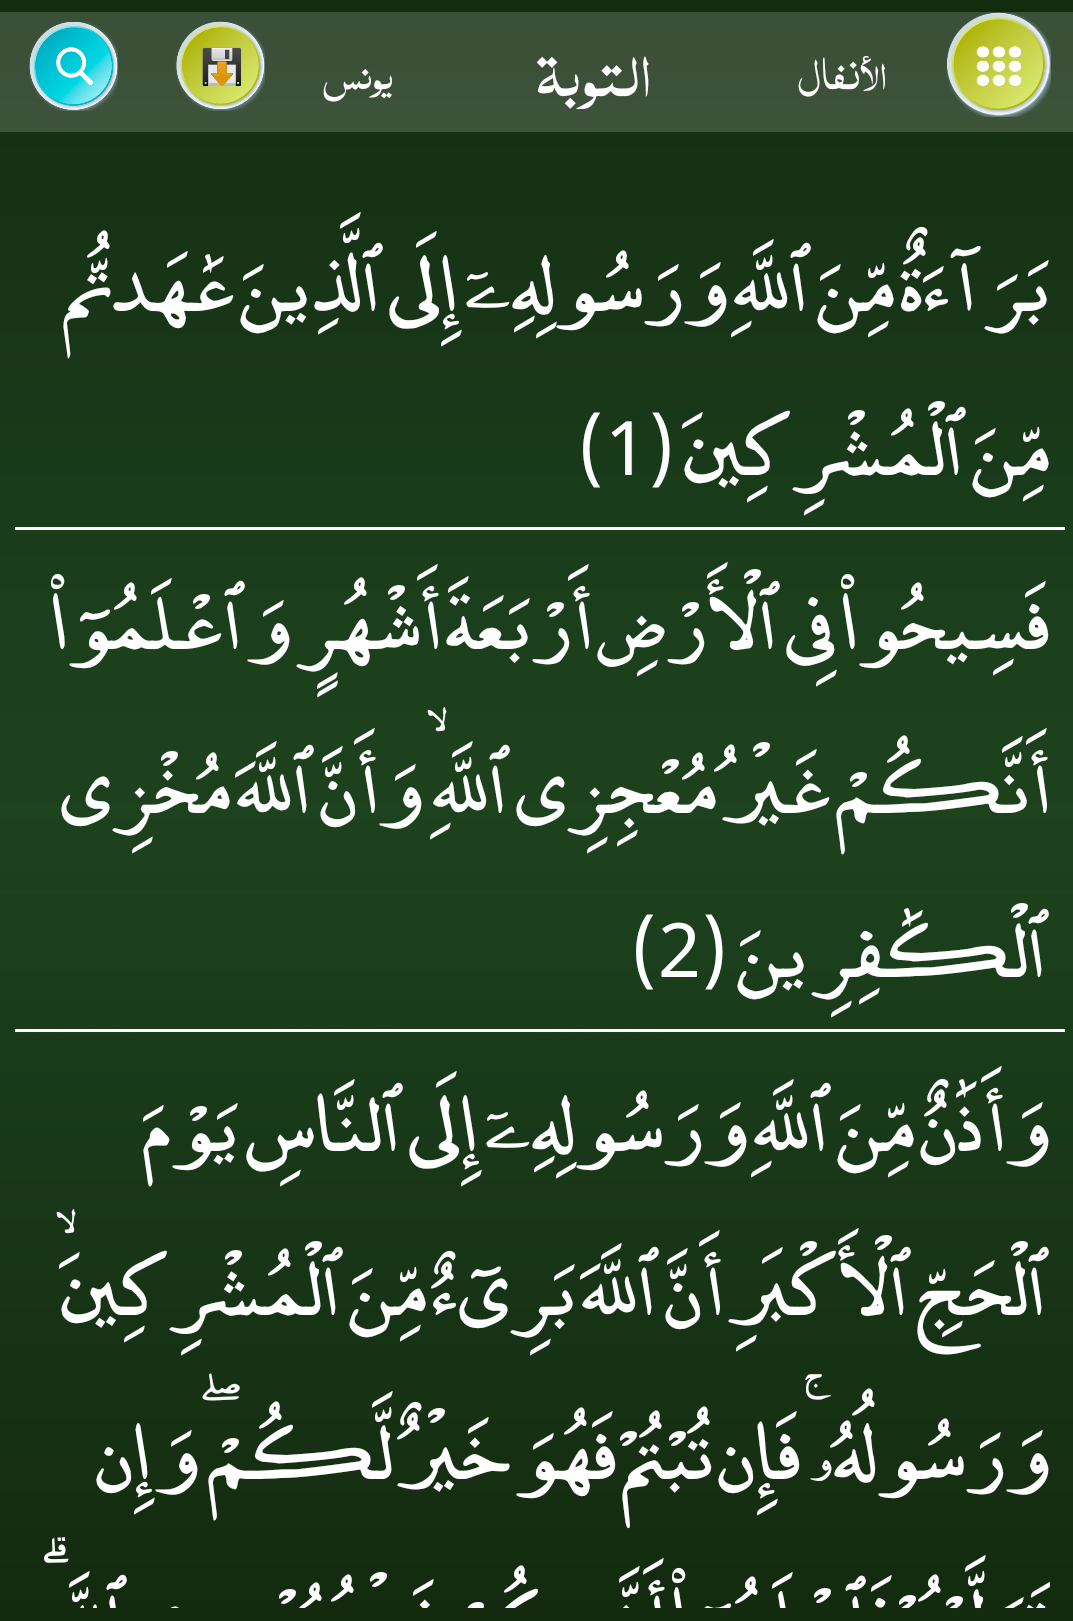 الأنفال التوبة يونس
بَرَآءَةٌ مِّنَ ٱللَّهِ وَرَسُولِهِۦٓ إِلَى ٱلَّذِينَ عَٰهَدتُّم
مِّنَ ٱلْمُشْرِكِينَ (1)
فَسِيحُوا۟ فِى ٱلْأَرْضِ أَرْبَعَةَ أَشْهُرٍ وَٱعْلَمُوٓا۟
أَنَّكُمْ غَيْرُ مُعْجِزِى ٱللَّهِ ۙ وَأَنَّ ٱللَّهَ مُخْزِى
ٱلْكَٰفِرِينَ (2)
وَأَذَٰنٌ مِّنَ ٱللَّهِ وَرَسُولِهِۦٓ إِلَى ٱلنَّاسِ يَوْمَ
ٱلْحَجِّ ٱلْأَكْبَرِ أَنَّ ٱللَّهَ بَرِىٓءٌ مِّنَ ٱلْمُشْرِكِينَ ۙ
وَرَسُولُهُۥ ۚ فَإِن تُبْتُمْ فَهُوَ خَيْرٌ لَّكُمْ ۖ وَإِن